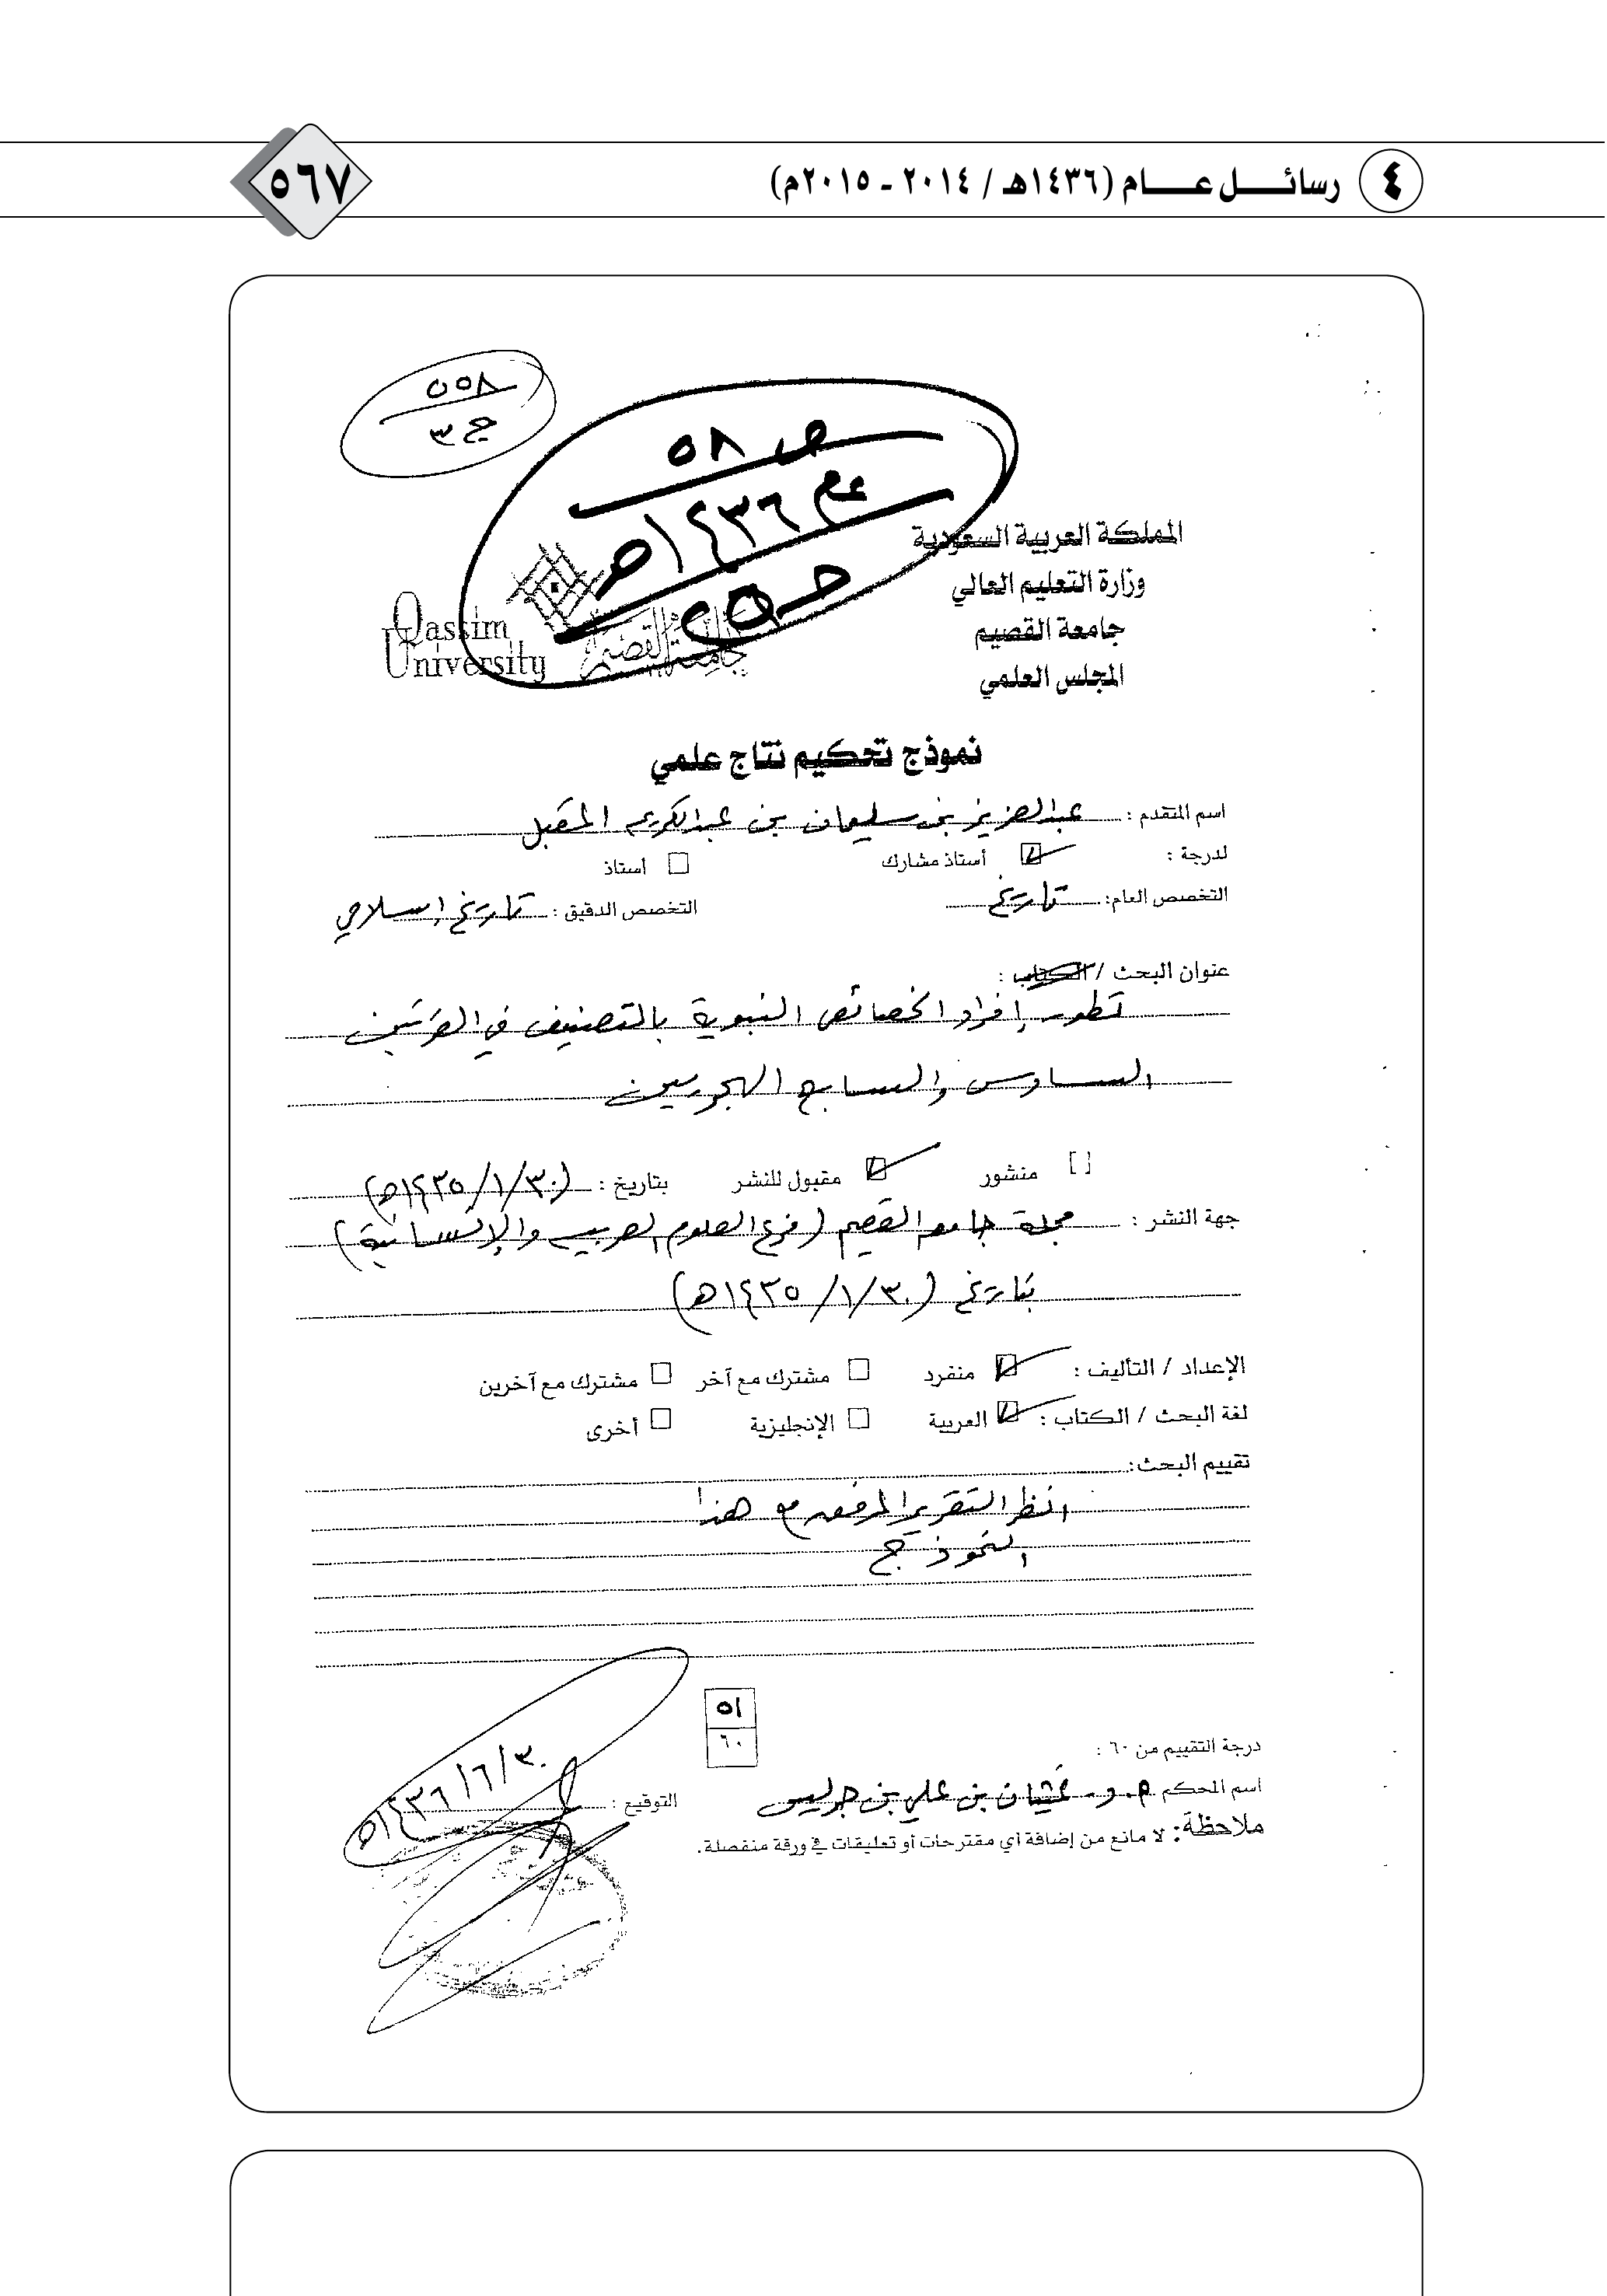 ٤ رسائــــل عـــــام (١٤٣٦هـ / ٢٠١٤ ـ ٢٠١٥م)
٥٦٧
٥٥٨
ج ٣
ص ٥٨
عام ١٤٣٦هـ
المملكة العربية السعودية
وزارة التعليم العالي
جامعة القصيم
المجلس العلمي
Qassim
University
جامعة القصيم
نموذج تحكيم نتاج علمي
اسم المتقدم : عبدالعزيز بن سليمان بن عبدالكريم المقبل
لدرجة : أستاذ مشارك أستاذ
التخصص العام: تاريخ التخصص الدقيق : تاريخ إسلامي
عنوان البحث / الكتاب :
تطور إفراد الخصائص النبوية بالتصنيف في القرنين
السادس والسابع الهجريين
منشور مقبول للنشر بتاريخ : (١٤٣٥/١/٣٠هـ)
جهة النشر : مجلة جامعة القصيم (فرع العلوم العربية والإنسانية)
بتاريخ (١٤٣٥/١/٣٠هـ)
الإعداد / التأليف : منفرد مشترك مع آخر مشترك مع آخرين
لغة البحث / الكتاب : العربية الإنجليزية أخرى
تقييم البحث:
انظر التقرير المرفق مع هذا
النموذج
٥١
٦٠
درجة التقييم من ٦٠ :
اسم المحكم أ. د. غيثان بن علي بن جريس التوقيع : ١٤٣٦/٦/٣٠هـ
ملاحظة: لا مانع من إضافة أي مقترحات أو تعليقات في ورقة منفصلة.